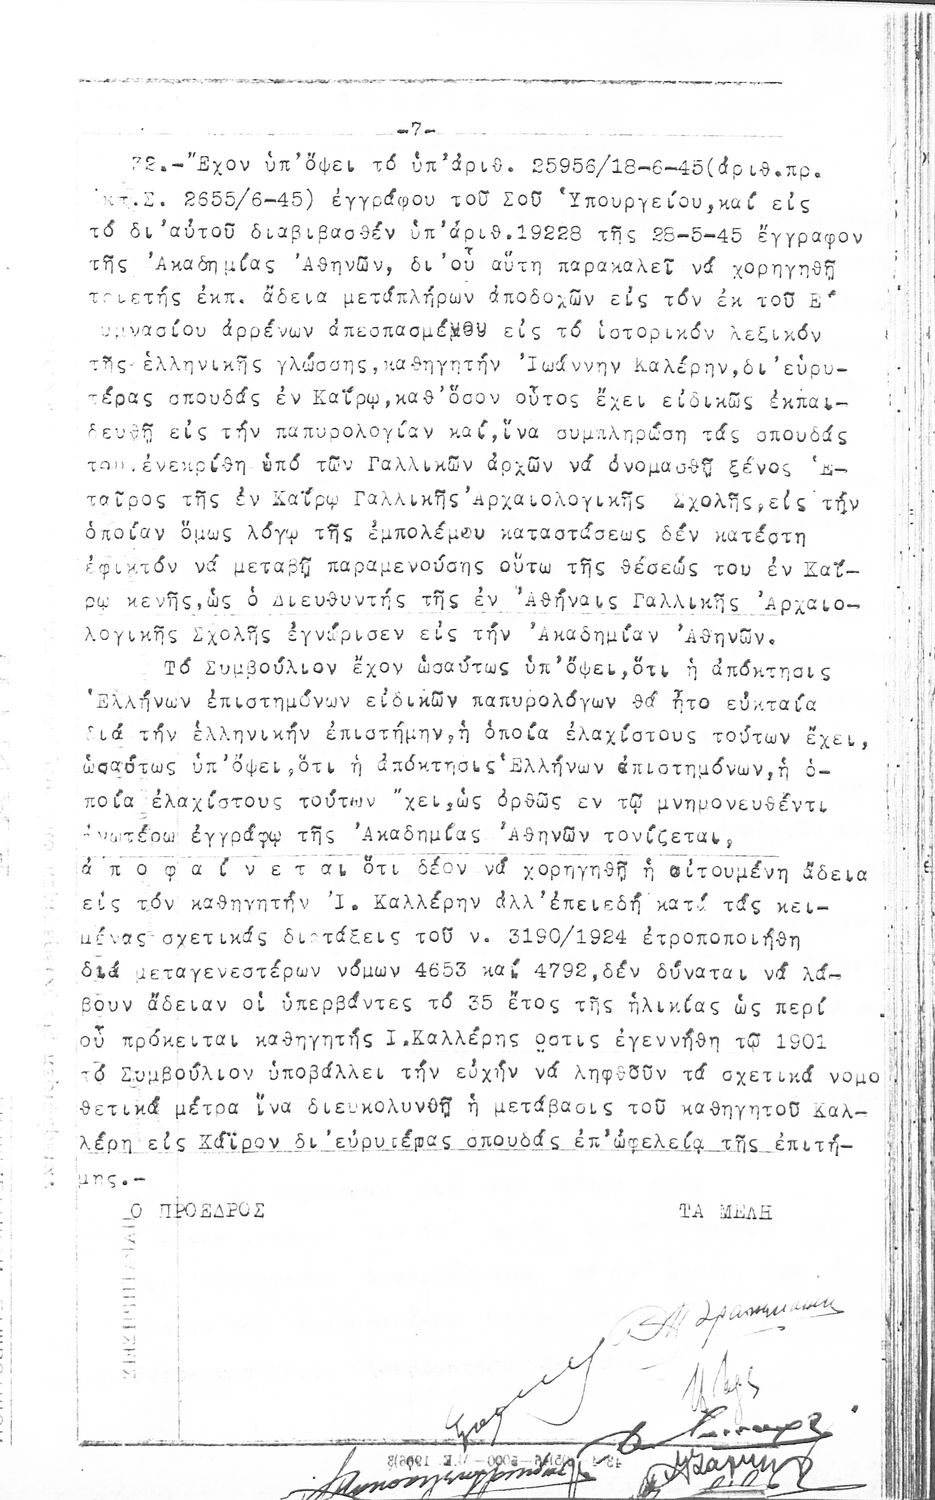 -7-
32.-"Εχον ὑπ'ὄψει τό ὑπ'ἀριθ. 25956/18-6-45(ἀριθ.πρ.
Σ. 2655/6-45) ἐγγράφου τοῦ Σοῦ Ὑπουργείου,καί εἰς
τό δι'αὐτοῦ διαβιβασθέν ὑπ'ἀριθ.19228 τῆς 28-5-45 ἔγγραφον
τῆς Ἀκαδημίας Ἀθηνῶν, δι'οὗ αὕτη παρακαλεῖ νά χορηγηθῇ
τριετής ἐκπ. ἄδεια μετάπλήρων ἀποδοχῶν εἰς τόν ἐκ τοῦ Ε'
υμνασίου ἀρρένων ἀπεσπασμένου εἰς τό ἱστορικόν λεξικόν
τῆς ἑλληνικῆς γλώσσης,καθηγητήν Ἰωάννην Καλέρην,δι'εὐρυ-
τέρας σπουδάς ἐν Καΐρῳ,καθ'ὅσον οὗτος ἔχει εἰδικῶς ἐκπαι-
δευθῇ εἰς τήν παπυρολογίαν καί,ἵνα συμπληρώση τάς σπουδάς
του.ἐνεκρίθη ὑπό τῶν Γαλλικῶν ἀρχῶν νά ὀνομασθῇ ξένος Ἑ-
ταῖρος τῆς ἐν Καΐρῳ Γαλλικῆς Ἀρχαιολογικῆς Σχολῆς,εἰς τήν
ὁποίαν ὅμως λόγῳ τῆς ἐμπολέμου καταστάσεως δέν κατέστη
ἐφικτόν νά μεταβῇ παραμενούσης οὕτω τῆς θέσεώς του ἐν Καΐ-
ρῳ κενῆς,ὡς ὁ Διευθυντής τῆς ἐν Ἀθήναις Γαλλικῆς Ἀρχαιο-
λογικῆς Σχολῆς ἐγνώρισεν εἰς τήν Ἀκαδημίαν Ἀθηνῶν.
Τό Συμβούλιον ἔχον ὡσαύτως ὑπ'ὄψει,ὅτι ἡ ἀπόκτησις
Ἑλλήνων ἐπιστημόνων εἰδικῶν παπυρολόγων θά ἦτο εὐκταία
διά τήν ἑλληνικήν ἐπιστήμην,ἡ ὁποία ἐλαχίστους τούτων ἔχει,
ὡσαύτως ὑπ'ὄψει,ὅτι ἡ ἀπόκτησις Ἑλλήνων ἐπιστημόνων,ἡ ὁ-
ποία ἐλαχίστους τούτων "χει,ὡς ὀρθῶς εν τῷ μνημονευθέντι
ἀνωτέρω ἐγγράφῳ τῆς Ἀκαδημίας Ἀθηνῶν τονίζεται,
ἀ π ο φ α ί ν ε τ αι ὅτι δέον νά χορηγηθῇ ἡ αἰτουμένη ἄδεια
εἰς τόν καθηγητήν Ἰ. Καλλέρην ἀλλ'ἐπειεδή κατά τάς κει-
μένας σχετικάς διατάξεις τοῦ ν. 3190/1924 ἐτροποποιήθη
διά μεταγενεστέρων νόμων 4653 καί 4792,δέν δύναται νά λά-
βουν ἄδειαν οἱ ὑπερβάντες τό 35 ἔτος τῆς ἡλικίας ὡς περί
οὗ πρόκειται καθηγητής Ι.Καλλέρης οστις ἐγεννήθη τῷ 1901
τό Συμβούλιον ὑποβάλλει τήν εὐχήν νά ληφθοῦν τά σχετικά νομο
θετικά μέτρα ἵνα διευκολυνθῇ ἡ μετάβασις τοῦ καθηγητοῦ Καλ-
λέρη εἰς Κάϊρον δι'εὐρυτέρας σπουδάς ἐπ'ὠφελείᾳ τῆς ἐπιτή-
μης.-
Ο ΠΡΟΕΔΡΟΣ ΤΑ ΜΕΛΗ